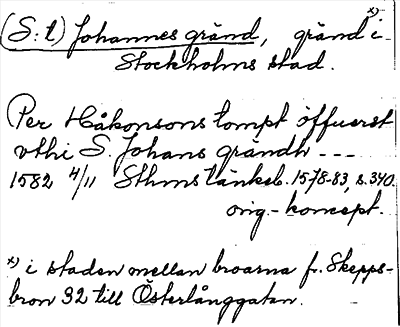 (S:t) Johannes gränd, gränd i x)
Stockholms stad.
Per Håkonsons tompt öffuerst
vthi S. Johans grändh ---
1582 4/11 Sthms tänkeb. 1578-83, s. 340.
orig.-koncept.
x) i staden mellan broarna fr. Skepps-
bron 32 till Österlånggatan.